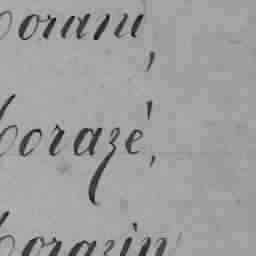 Corani,
Corazé,
Corazin